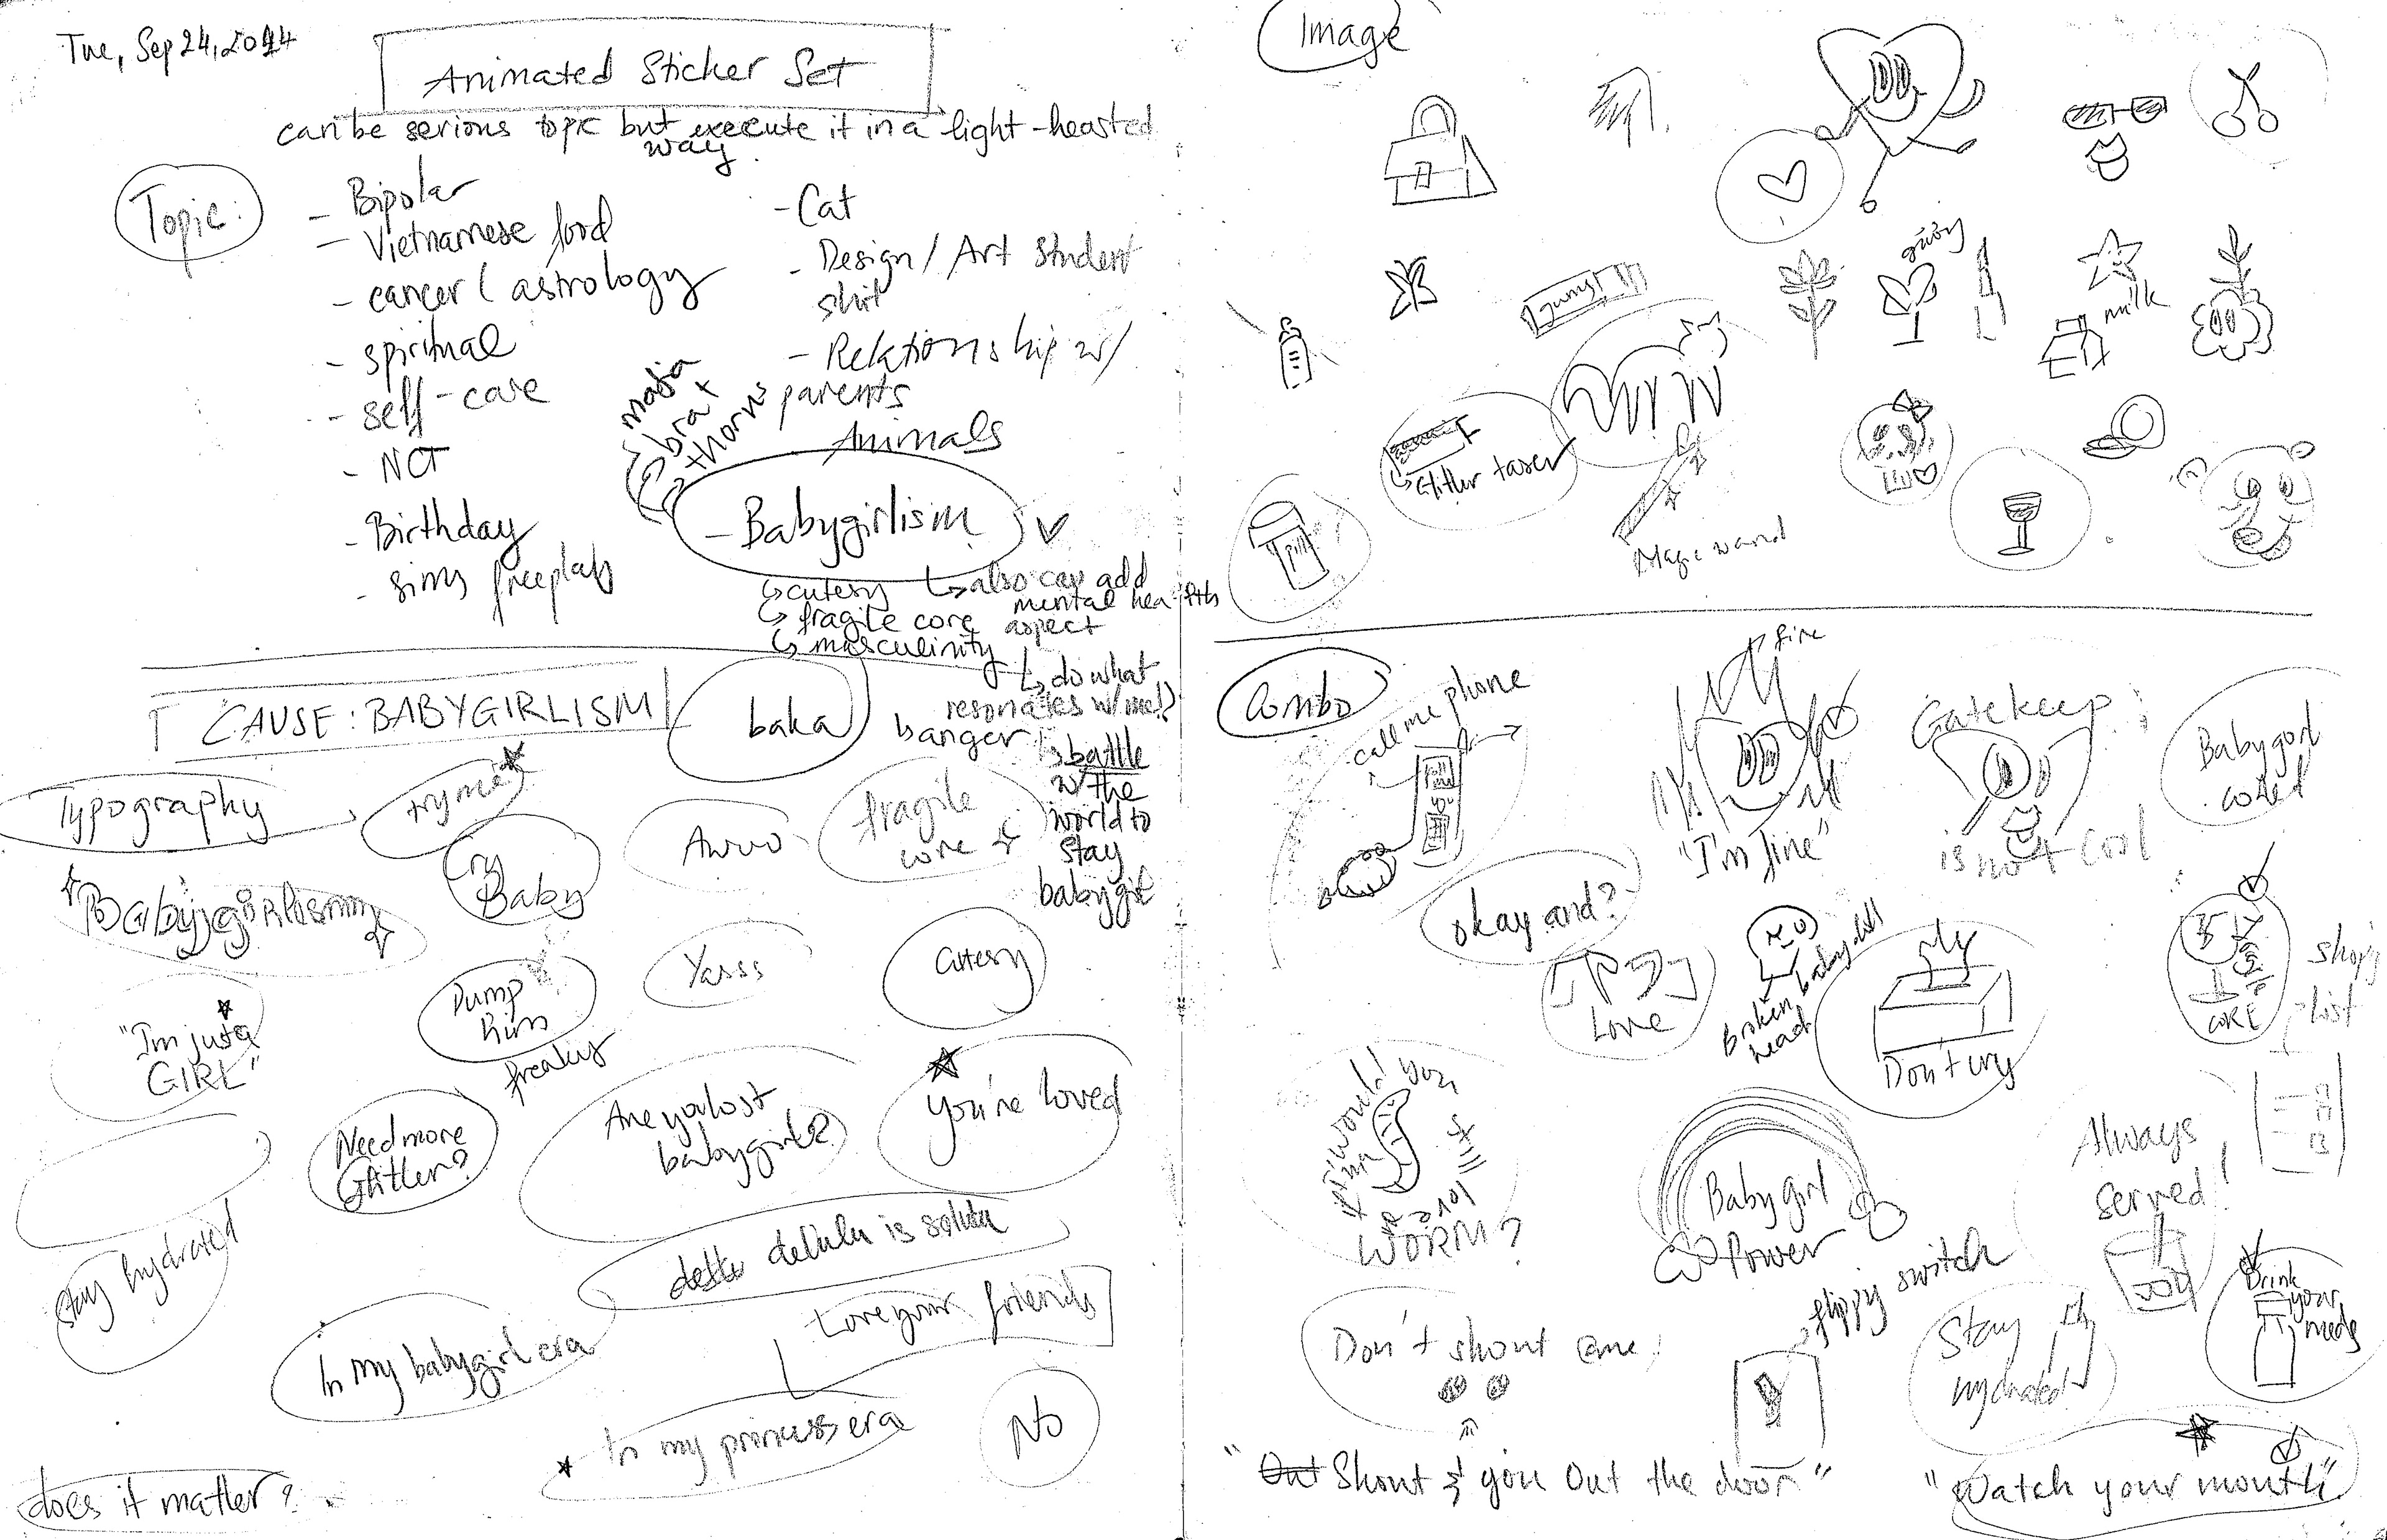 Tue, Sep 24, 2024
Animated Sticker Set
can be serious topic but execute it in a light-hearted
way.
Topic:
- Bipolar
- Vietnamese food
- cancer (astrology
- spiritual
- self-care
- NCT
- Birthday
- sims freeplay
- Cat
- Design / Art student
shit
- Relationship w/
parents
Animals
mafia
brat
thorns
- Babygirlism
↳ cutesy
↳ fragile core
↳ masculinity
↳ also can add
mental health
aspect
↳ do what
resonates w/ me!?
↳ anger
↳ battle
w/ the
world to
stay
babygirl
CAUSE: BABYGIRLISM
baka
Typography
try me
Cry
Baby
Awwo
fragile
core
Babygirlism
Dump
him
Yasss
cutesy
"I'm just a
GIRL"
freaky
Need more
Glitter?
Are you lost
babygirl?
You're loved
delulu is solulu
stay hydrated
Love your friends
In my babygirl era
In my princess era
No
does it matter?
Image
gum
milk
Glitter taser
Magic wand
pill
Combo
call me phone
fire
"I'm fine"
Gatekeep
is not cool
Babygirl
coded
okay and?
Love
broken baby doll
Broken
head
Don't cry
CORE
shop
list
would you
still
love me
if i was a
WORM?
Babygirl
Power
Always
served!
Don't shout @me!
flippy switch
Stay
hydrated
Drink
your
meds
"Out Shout & you Out the door"
"Watch your mouth"